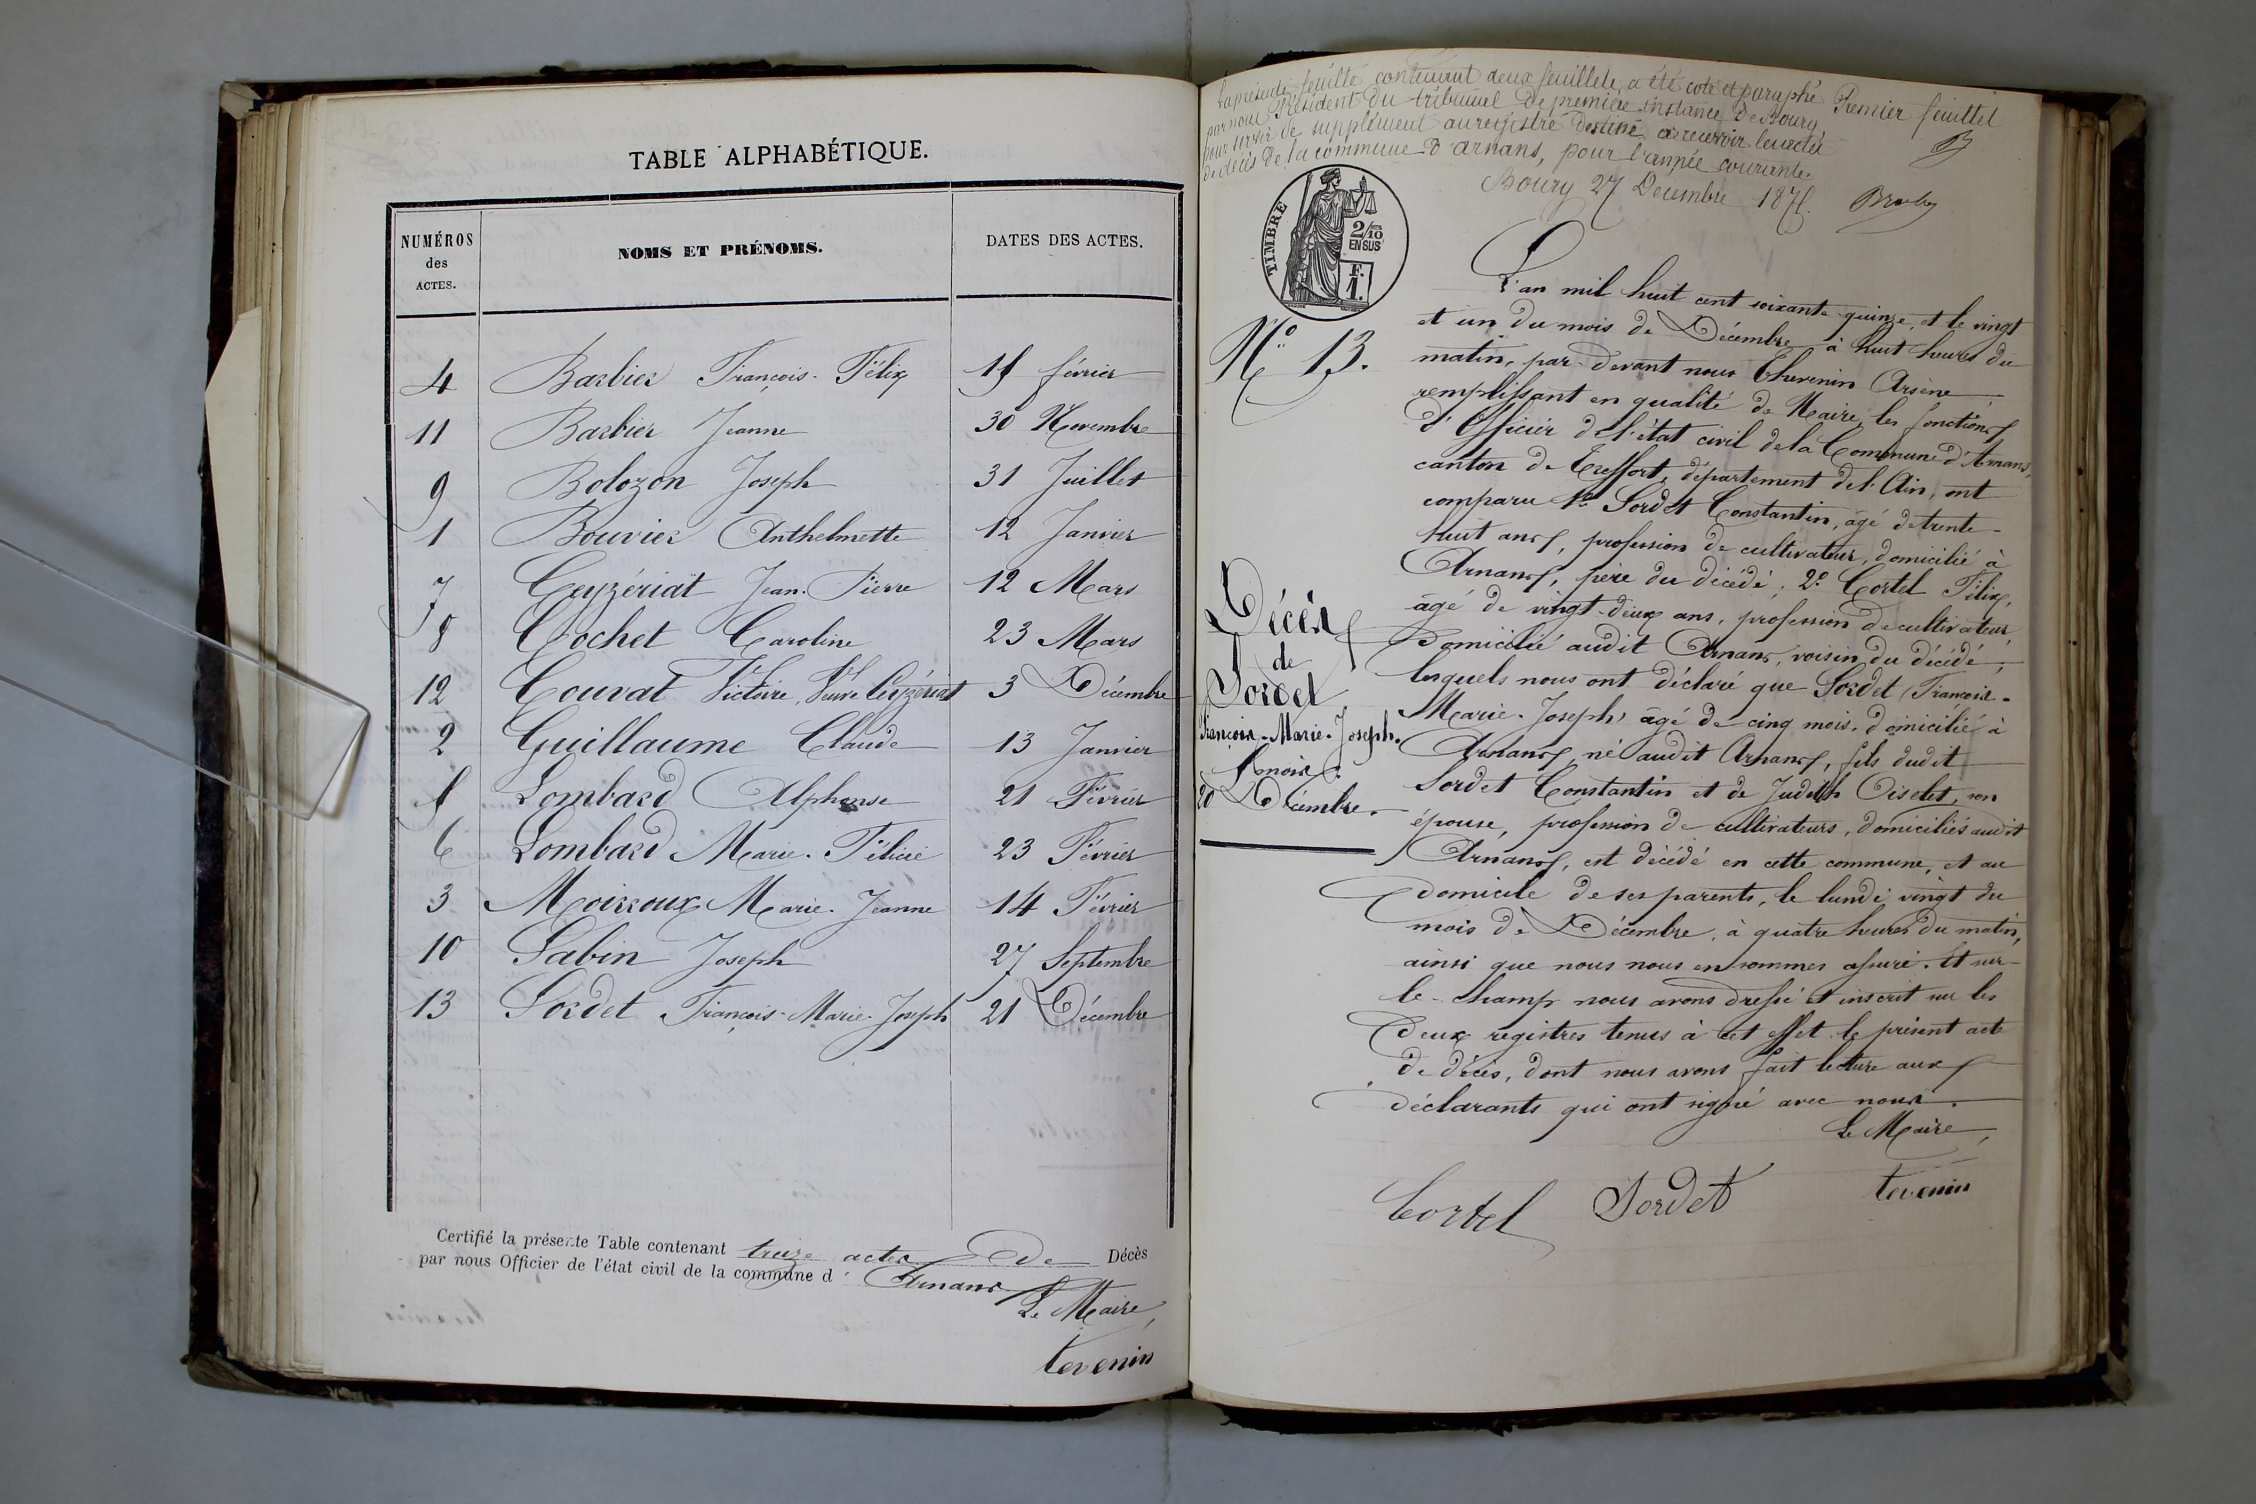 TABLE ALPHABÉTIQUE.
NUMÉROS des ACTES.
NOMS ET PRÉNOMS.
DATES DES ACTES.
4 Barbier François-Félix 15 février
11 Barbier Jeanne 30 Novembre
9 Bolozon Joseph 31 Juillet
1 Bouvier Anthelmette 12 Janvier
7 Ceyzériat Jean-Pierre 12 Mars
8 Cochet Caroline 23 Mars
12 Couvat Victoire, Veuve Ceyzériat 3 Décembre
2 Guillaume Claude 13 Janvier
5 Lombard Alphonse 21 Février
6 Lombard Marie-Félicie 23 Février
3 Moissoux Marie-Jeanne 14 Février
10 Sabin Joseph 27 Septembre
13 Sordet François-Marie-Joseph 21 Décembre
Certifié la présente Table contenant treize actes de Décès
par nous Officier de l'état civil de la commune d' Arnans
Le Maire,
tevenin
La présente feuille contenant deux feuillets, a été coté et paraphé
par nous Président du tribunal de première instance de Bourg
pour servir de supplément au registre destiné à recevoir les actes
de décès de la commune d'arnans, pour l'année courante.
Bourg 27 Décembre 1875.
Premier feuillet
TIMBRE
2/10
EN SUS
F.
1.
N° 13.
Décès
de
Sordet
François-Marie-Joseph.
5 mois.
20 Décembre.
L'an mil huit cent soixante-quinze, et le vingt
et un du mois de Décembre à huit heures du
matin, par-devant nous Thevenin Arsène
remplissant en qualité de Maire, les fonctions
d'Officier de l'état civil de la Commune d'Arnans,
canton de Treffort, département de l'Ain, ont
comparu 1° Sordet Constantin, âgé de trente-
huit ans, profession de cultivateur, domicilié à
Arnans, père du décédé; 2° Cortel Félix,
âgé de vingt-deux ans, profession de cultivateur,
domicilié audit Arnans, voisin du décédé;
lesquels nous ont déclaré que Sordet François-
Marie-Joseph, âgé de cinq mois, domicilié à
Arnans, né audit Arnans, fils dudit
Sordet Constantin et de Judith Oiselet, son
épouse, profession de cultivateurs, domiciliés audit
Arnans, est décédé en cette commune, et au
domicile de ses parents, le lundi vingt du
mois de Décembre, à quatre heures du matin,
ainsi que nous nous en sommes assuré. Et sur-
le-champ nous avons dressé et inscrit sur les
deux registres tenus à cet effet le présent acte
de décès, dont nous avons fait lecture aux
déclarants qui ont signé avec nous.
Le Maire,
Cortel Sordet tevenin